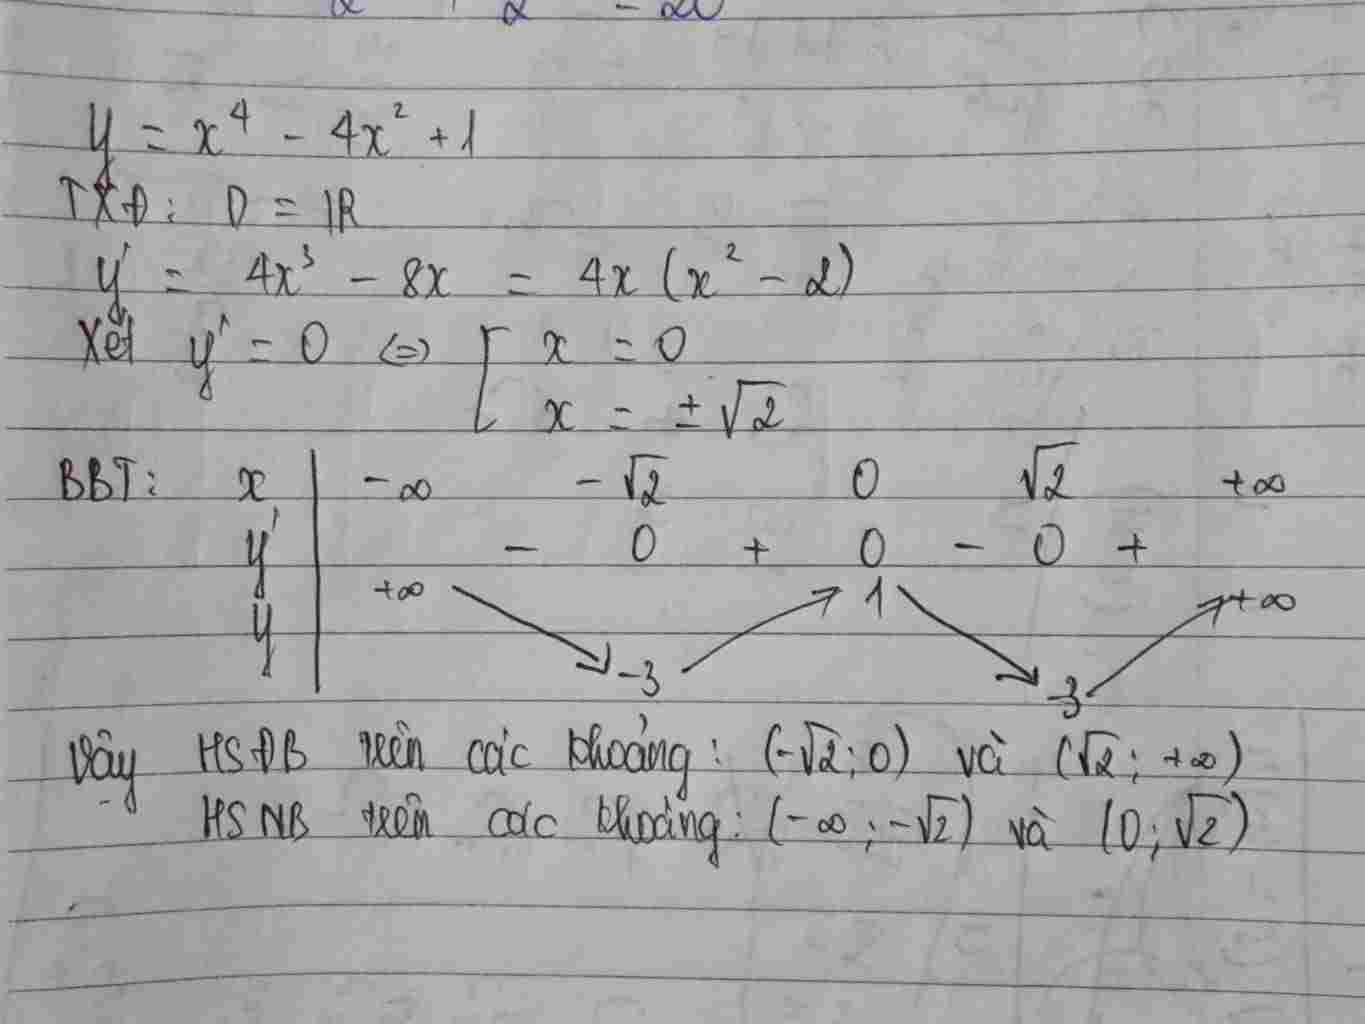 y = x⁴ - 4x² + 1
TXĐ: D = ℝ
y' = 4x³ - 8x = 4x (x² - 2)
Xét y' = 0 ⇔ [ x = 0
x = ± √2
BBT: x | -∞ -√2 0 √2 +∞
y' | - 0 + 0 - 0 +
y | +∞ ↘ -3 ↗ 1 ↘ -3 ↗ +∞
Vậy HSĐB trên các khoảng: (-√2; 0) và (√2; +∞)
HSNB trên các khoảng: (-∞; -√2) và (0; √2)